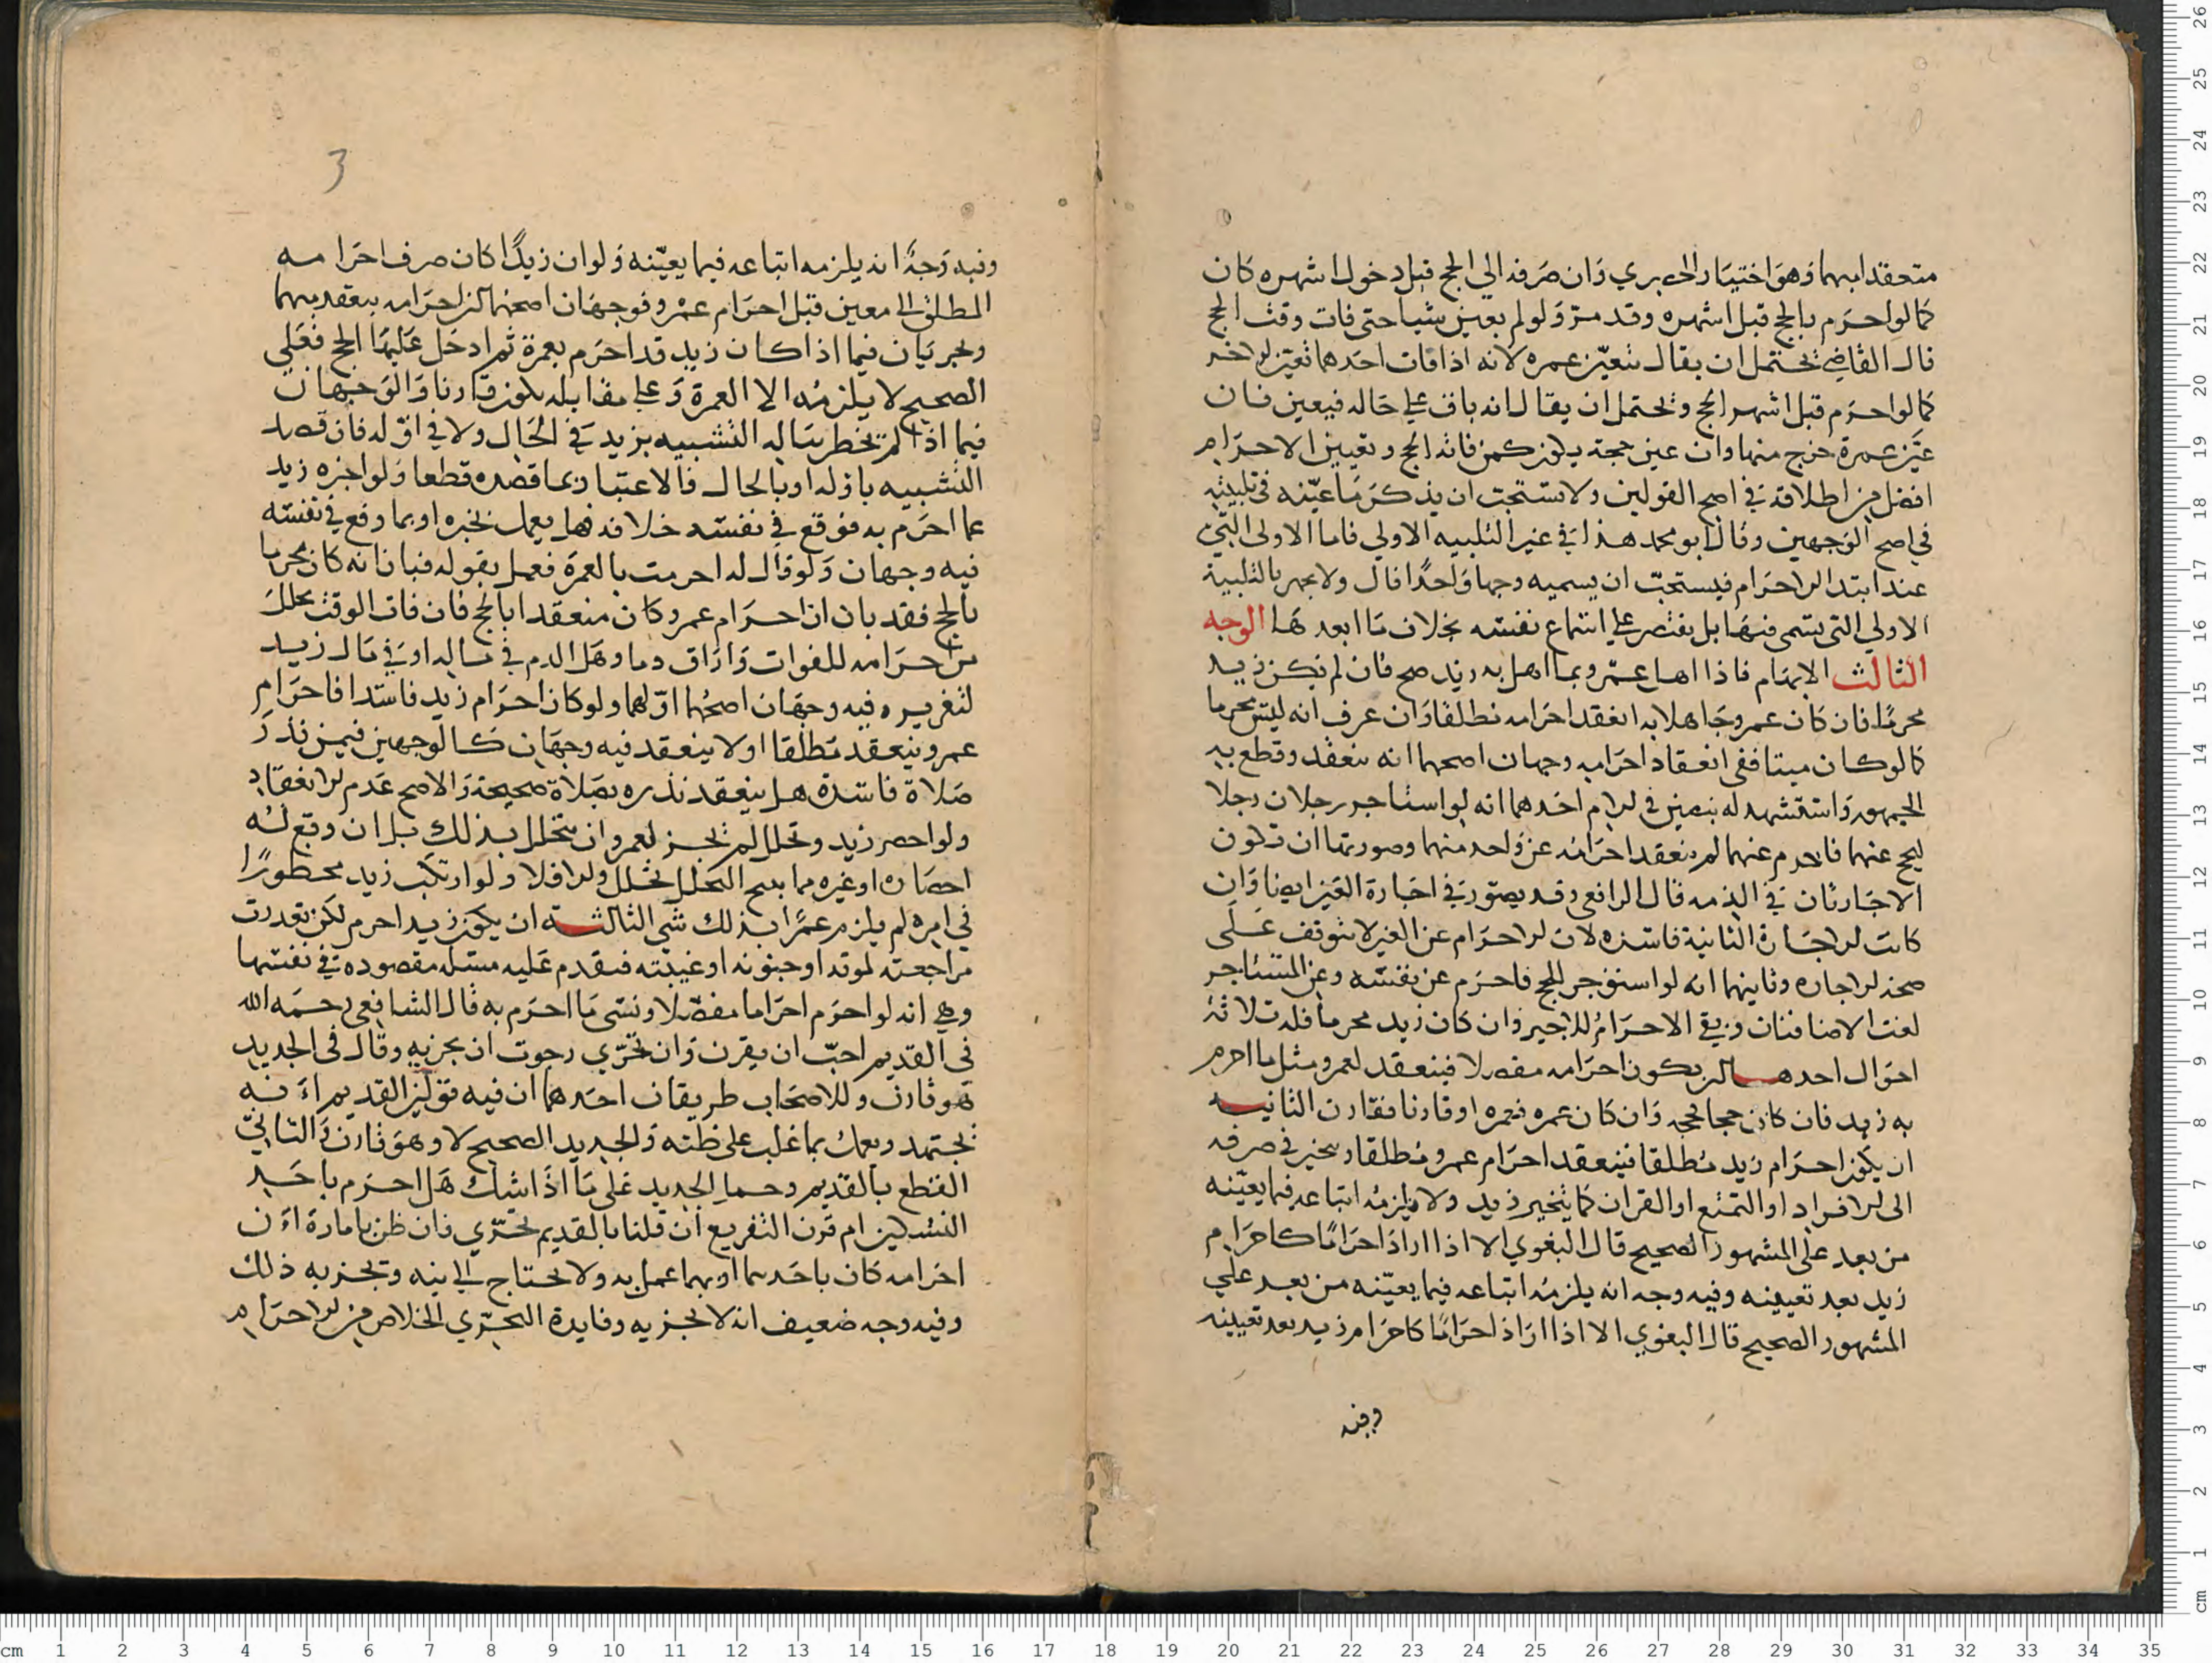 منعقدا بهما وهو اختيار الطبري وان صرفه الي الحج قبل دخول اشهره كان
كما لو احرم بالحج قبل اشهره وقد مر ولو لم يعين شيا حتى فات وقت الحج
قال القاضي يحتمل ان يقال تتعين عمره لانه اذا فات احدهما تعين الاخر
كما لو احرم قبل اشهر الحج ويحتمل ان يقال انه باق علي حاله فيعين فان
عين عمرة خرج منها وان عين حجة يكون كمن فاته الحج وتعيين الاحرام
افضل من اطلاقه في اصح القولين ولا يستحب ان يذكر ما عينه في تلبيته
في اصح الوجهين وقال ابو محمد هذا في غير التلبيه الاولي فاما الاولى التي
عند ابتدا الاحرام فيستحب ان يسميه وجها واحدا قال ولا يجهر بالتلبية
الاولي التي يسمى فيها بل يقتصر علي اسماع نفسه بخلاف ما بعدها الوجه
الثالث الابهام فاذا اهل عمرو بما اهل به زيد صح فان لم يكن زيد
محرما فان كان عمرو جاهلا به انعقد احرامه مطلقا وان عرف انه ليس محرما
كما لو كان ميتا ففي انعقاد احرامه وجهان اصحهما انه ينعقد وقطع به
الجمهور واستشهد له بنصين في الام احدهما انه لو استاجر رجلان رجلا
ليحج عنهما فاحرم عنهما لم ينعقد احرامه عن واحد منهما وصورتها ان تكون
الاجارتان في الذمه قال الرافعي وقد يصور في اجارة العين ايضا وان
كانت الاجارة الثانية فاسده لان الاحرام عن الغير لا يتوقف على
صحة الاجاره وثانيهما انه لو استؤجر للحج فاحرم عن نفسه وعن المستاجر
لغت الاضافتان وبقي الاحرام للاجير وان كان زيد محرما فله ثلاثة
احوال احدها ان يكون احرامه مفصلا فينعقد لعمرو مثل ما احرم
به زيد فان كان حجا فحجه وان كان عمره فعمره او قارنا فقارن الثانيه
ان يكون احرام زيد مطلقا فينعقد احرام عمرو مطلقا ويتخير في صرفه
الى الافراد او التمتع او القران كما يتخير زيد ولا يلزمه اتباعه فيما يعينه
من بعد على المشهور الصحيح قال البغوي الا اذا اراد احراما كاحرام
زيد بعد تعيينه وفيه وجه انه يلزمه اتباعه فيما يعينه من بعد علي
المشهور الصحيح قال البغوي الا اذا اراد احراما كاحرام زيد بعد تعيينه
وفيه
3
وفيه وجه انه يلزمه اتباعه فيما يعينه ولو ان زيدا كان صرف احرامه
المطلق الى معين قبل احرام عمرو فوجهان اصحهما ان احرامه ينعقد مبهما
ويجريان فيما اذا كان زيد قد احرم بعمرة ثم ادخل عليها الحج فعلي
الصحيح لا يلزمه الا العمرة وعلي مقابله يكون قارنا والوجهان
فيما اذا لم يخطر بباله التشبيه بزيد في الحال ولا في اوله فان قصد
التشبيه باوله او بالحال فالاعتبار بما قصده قطعا ولو اخبره زيد
عما احرم به فوقع في نفسه خلافه فهل يعمل بخبره او بما وقع في نفسه
فيه وجهان ولو قال له احرمت بالعمرة فعمل بقوله فبان انه كان محرما
بالحج فقد بان ان احرام عمرو كان منعقدا بالحج فان فات الوقت تحلل
من احرامه للفوات واراق دما وهل الدم في ماله او في مال زيد
لتغريره فيه وجهان اصحهما اولهما ولو كان احرام زيد فاسدا فاحرام
عمرو ينعقد مطلقا او لا ينعقد فيه وجهان كالوجهين فيمن نذر
صلاة فاسدة هل ينعقد نذره بصلاة صحيحة والاصح عدم الانعقاد
ولو احصر زيد وتحلل لم يجز لعمرو ان يتحلل بذلك بل ان وقع له
احصار او غيره مما يبيح التحلل تحلل والا فلا ولو ارتكب زيد محظورا
في احرامه لم يلزم عمرا بذلك شي الثالثة ان يكون زيد احرم لكن تعذرت
مراجعته لموته او جنونه او غيبته فنقدم عليه مسئلة مقصوده في نفسها
وهي انه لو احرم احراما مفصلا ونسى ما احرم به قال الشافعي رحمه الله
في القديم احب ان يقرن وان تحري رجوت ان يجزيه وقال في الجديد
هو قارن وللاصحاب طريقان احدهما ان فيه قولين القديم انه
يجتهد ويعمل بما غلب على ظنه والجديد الصحيح لا وهو قارن والثاني
القطع بالقديم وحمل الجديد على ما اذا شك هل احرم باحد
النسكين ام قرن التفريع ان قلنا بالقديم تحري فان ظن بامارة ان
احرامه كان باحدهما او بهما عمل به ولا يحتاج الي نيه وتجزيه ذلك
وفيه وجه ضعيف انه لا يجزيه وفايدة التحري الخلاص من الاحرام